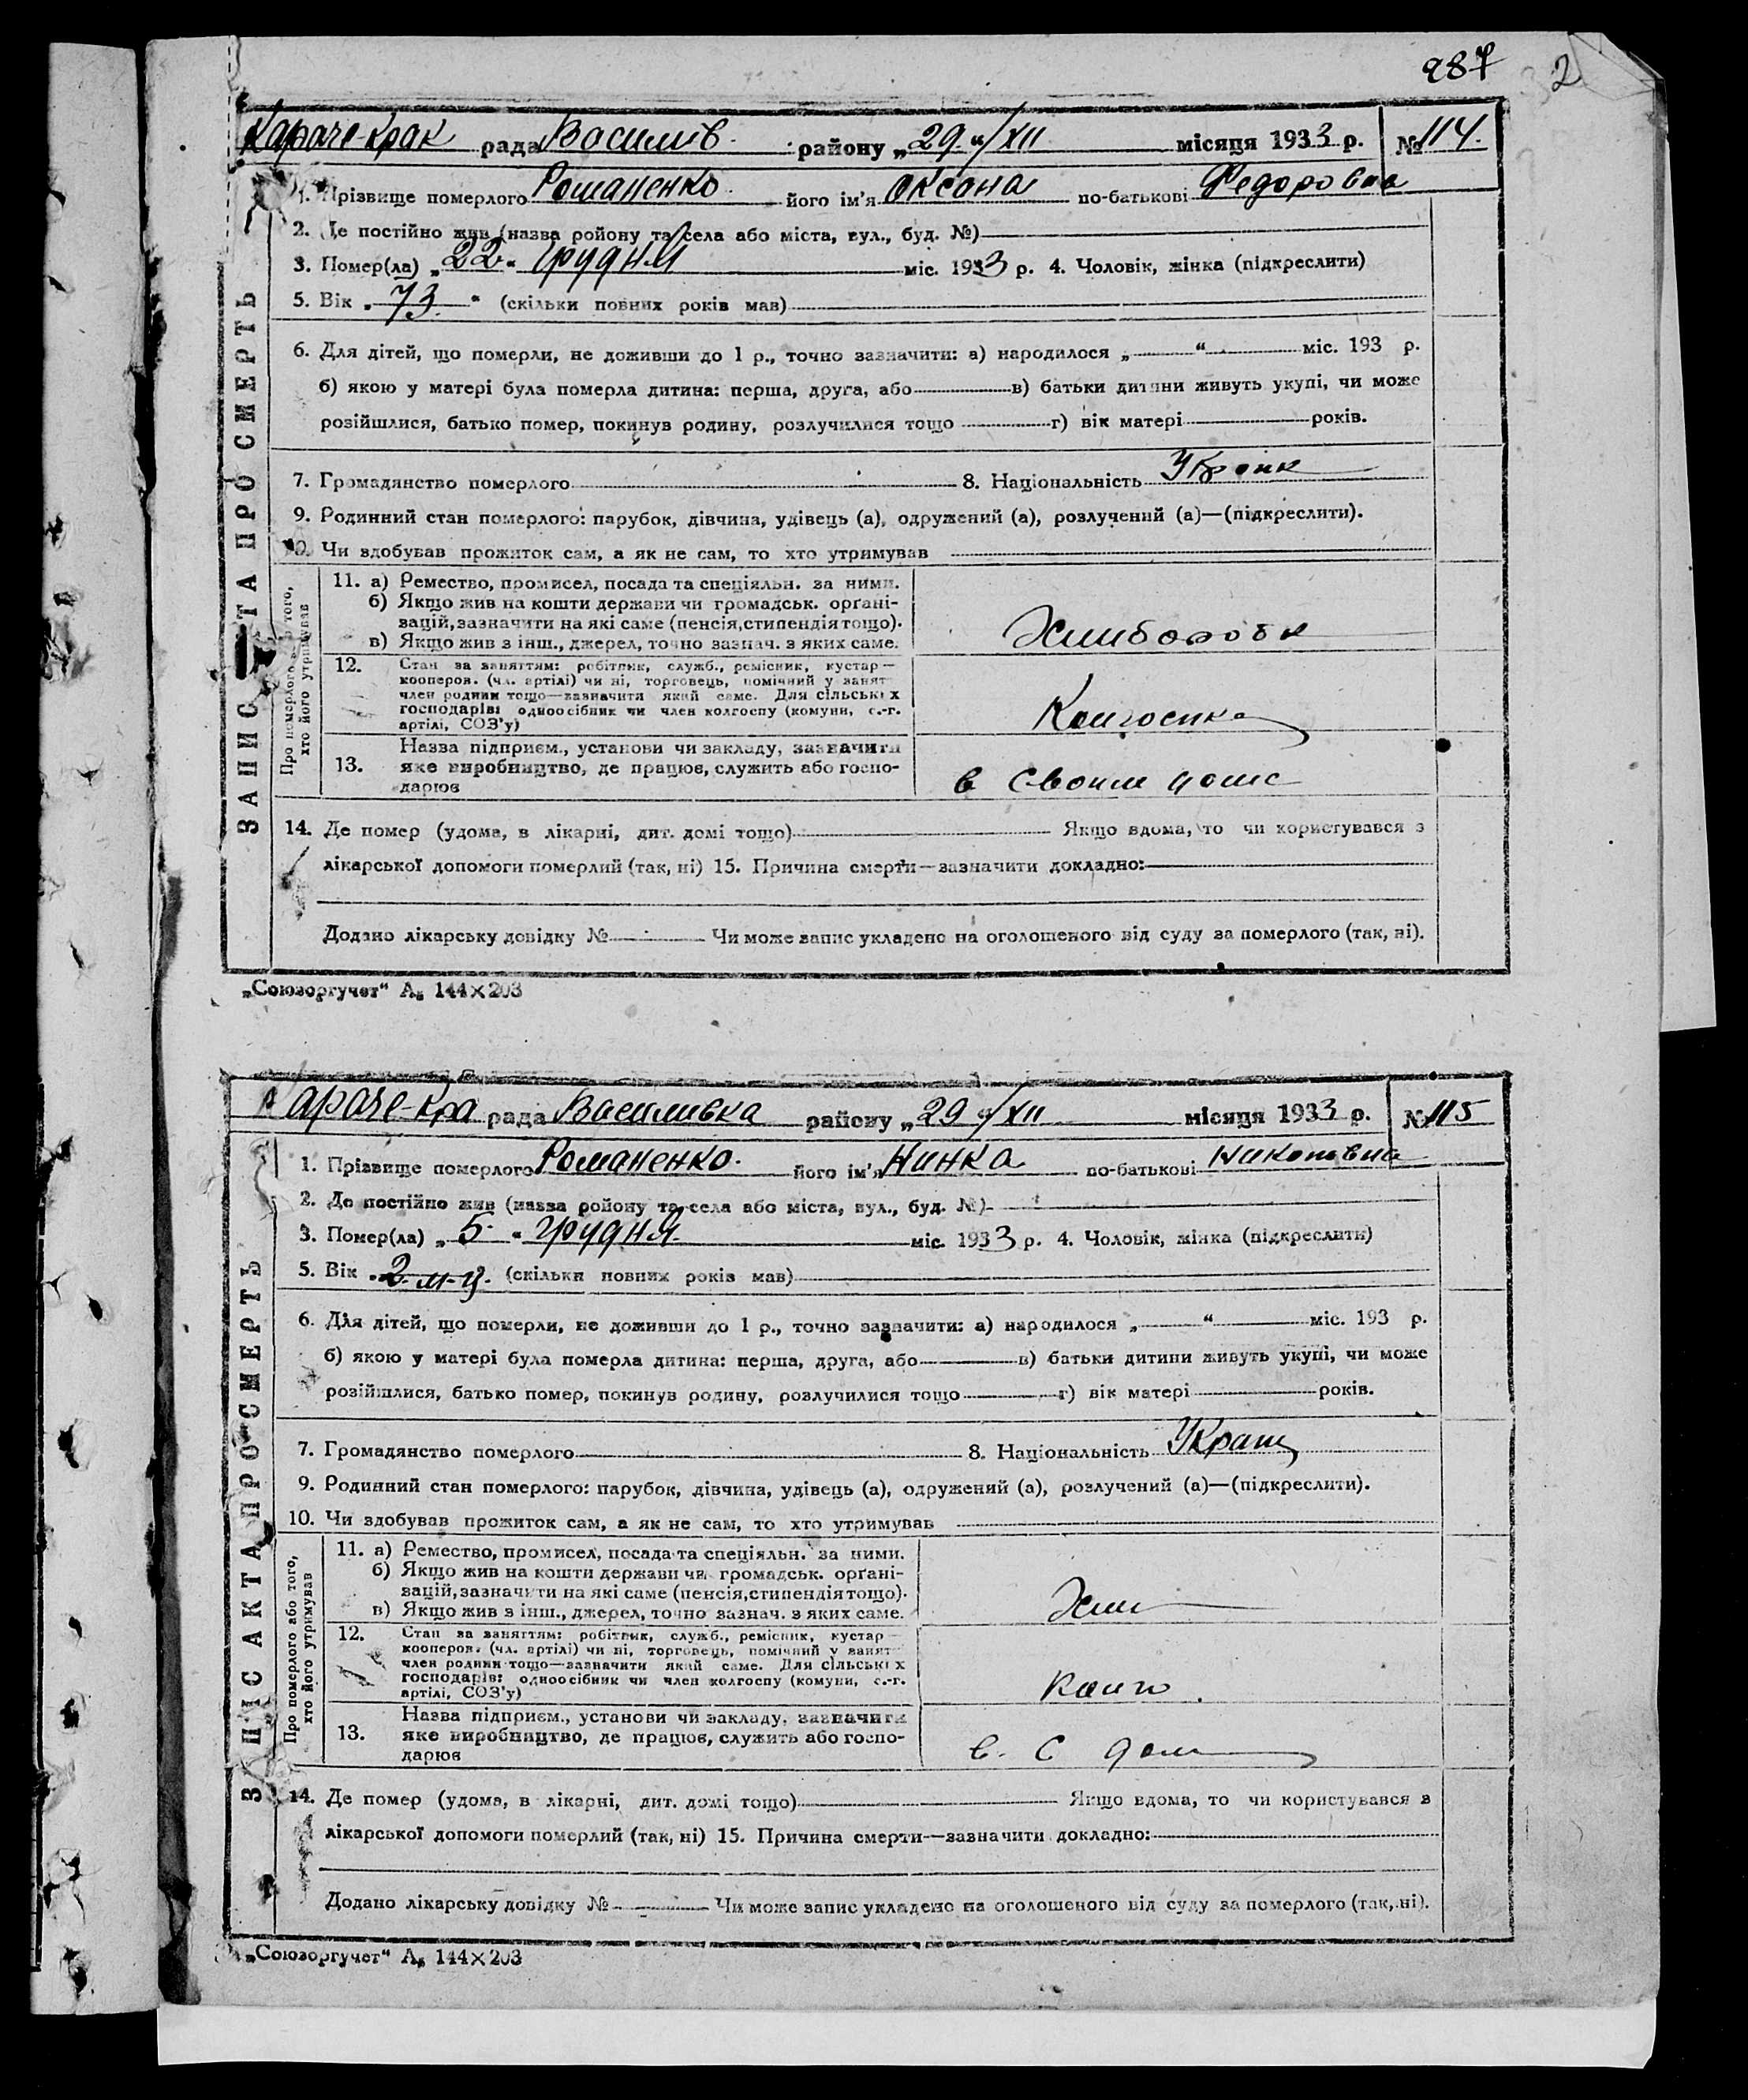 287 2
Караче-Крак рада Василів. району „29"/XII місяця 1933 р. № 114.
1. Прізвище померлого Романенко. його ім'я Оксана по-батькові Федоровна
2. Де постійно жив (назва ройону та села або міста, вул., буд. №)
3. Помер(ла) „22" грудня міс. 1933 р. 4. Чоловік, жінка (підкреслити)
5. Вік „73." (скільки повних років мав)
6. Для дітей, що померли, не доживши до 1 р., точно зазначити: а) народилося „ “ міс. 193 р.
б) якою у матері була померла дитина: перша, друга, або в) батьки дитини живуть укупі, чи може
розійшлися, батько помер, покинув родину, розлучилися тощо г) вік матері років.
7. Громадянство померлого 8. Національність
9. Родинний стан померлого: парубок, дівчина, удівець (а), одружений (а), розлучений (а)—(підкреслити).
10. Чи здобував прожиток сам, а як не сам, то хто утримував
11. а) Ремество, промисел, посада та спеціяльн. за ними.
б) Якщо жив на кошти держави чи громадськ. орґані-
зацій, зазначити на які саме (пенсія, стипендія тощо).
в) Якщо жив з інш., джерел, точно зазнач. з яких саме.
Хлиборобка
12. Стан за заняттям: робітник, служб., ремісник, кустар—
кооперов. (чл. артілі) чи ні, торговець, помічний у занят
член родини тощо—зазначити який саме. Для сільських
господарів: одноосібник чи член колгоспу (комуни, с.-г.
артілі, СОЗ'у)
Колгоспка
13. Назва підприєм., установи чи закладу, зазначити
яке виробництво, де працює, служить або госпо-
дарює
в своим доме
14. Де помер (удома, в лікарні, дит. домі тощо) Якщо вдома, то чи користувався з
лікарської допомоги померлий (так, ні) 15. Причина смерти—зазначити докладно:
Додано лікарську довідку № Чи може запис укладено на оголошеного від суду за померлого (так, ні).
ЗАПИС АКТА ПРО СМЕРТЬ
Про померлого або того,
хто його утримував
„Союзоргучет“ А₅ 144×203
Караче-Кра рада Василивка району „29"/XII місяця 1933 р. № 115
1. Прізвище померлого Романенко. його ім'я Нинка по-батькові
2. Де постійно жив (назва ройону та села або міста, вул., буд. №)
3. Помер(ла) „5" грудня міс. 1933 р. 4. Чоловік, жінка (підкреслити)
5. Вік „2. м-ц. (скільки повних років мав)
6. Для дітей, що померли, не доживши до 1 р., точно зазначити: а) народилося „ “ міс. 193 р.
б) якою у матері була померла дитина: перша, друга, або в) батьки дитини живуть укупі, чи може
розійшлися, батько помер, покинув родину, розлучилися тощо г) вік матері років.
7. Громадянство померлого 8. Національність
9. Родинний стан померлого: парубок, дівчина, удівець (а), одружений (а), розлучений (а)—(підкреслити).
10. Чи здобував прожиток сам, а як не сам, то хто утримував
11. а) Ремество, промисел, посада та спеціяльн. за ними.
б) Якщо жив на кошти держави чи громадськ. орґані-
зацій, зазначити на які саме (пенсія, стипендія тощо).
в) Якщо жив з інш., джерел, точно зазнач. з яких саме.
Хли
12. Стан за заняттям: робітник, служб., ремісник, кустар—
кооперов. (чл. артілі) чи ні, торговець, помічний у занят
член родини тощо—зазначити який саме. Для сільських
господарів: одноосібник чи член колгоспу (комуни, с.-г.
артілі, СОЗ'у)
Колго.
13. Назва підприєм., установи чи закладу, зазначити
яке виробництво, де працює, служить або госпо-
дарює
в. с дом
14. Де помер (удома, в лікарні, дит. домі тощо) Якщо вдома, то чи користувався з
лікарської допомоги померлий (так, ні) 15. Причина смерти—зазначити докладно:
Додано лікарську довідку № Чи може запис укладено на оголошеного від суду за померлого (так, ні).
ЗАПИС АКТА ПРО СМЕРТЬ
Про померлого або того,
хто його утримував
„Союзоргучет“ А₅ 144×203